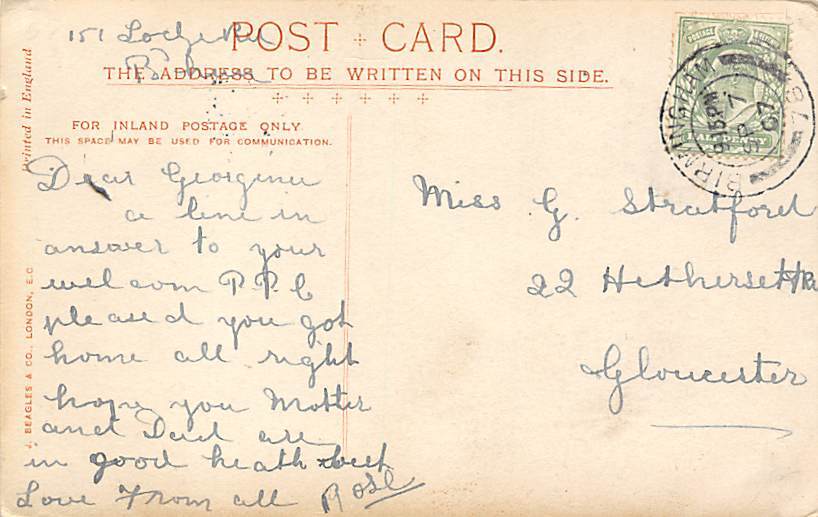 151
POST CARD.
THE ADDRESS TO BE WRITTEN ON THIS SIDE.
FOR INLAND POSTAGE ONLY
THIS SPACE MAY BE USED FOR COMMUNICATION.
Printed in England
J. BEAGLES & CO., LONDON, E.C
Dear Georginu
a line in
answer to your
welcom P.P.C
pleased you got
home all right
hope you Mother
and Dad are
in good heath best
Love From all Rose
Miss G. Stratford
22 Hethersett Rd
Gloucester
POSTAGE
HALFPENNY
BIRMINGHAM
SP 7
07